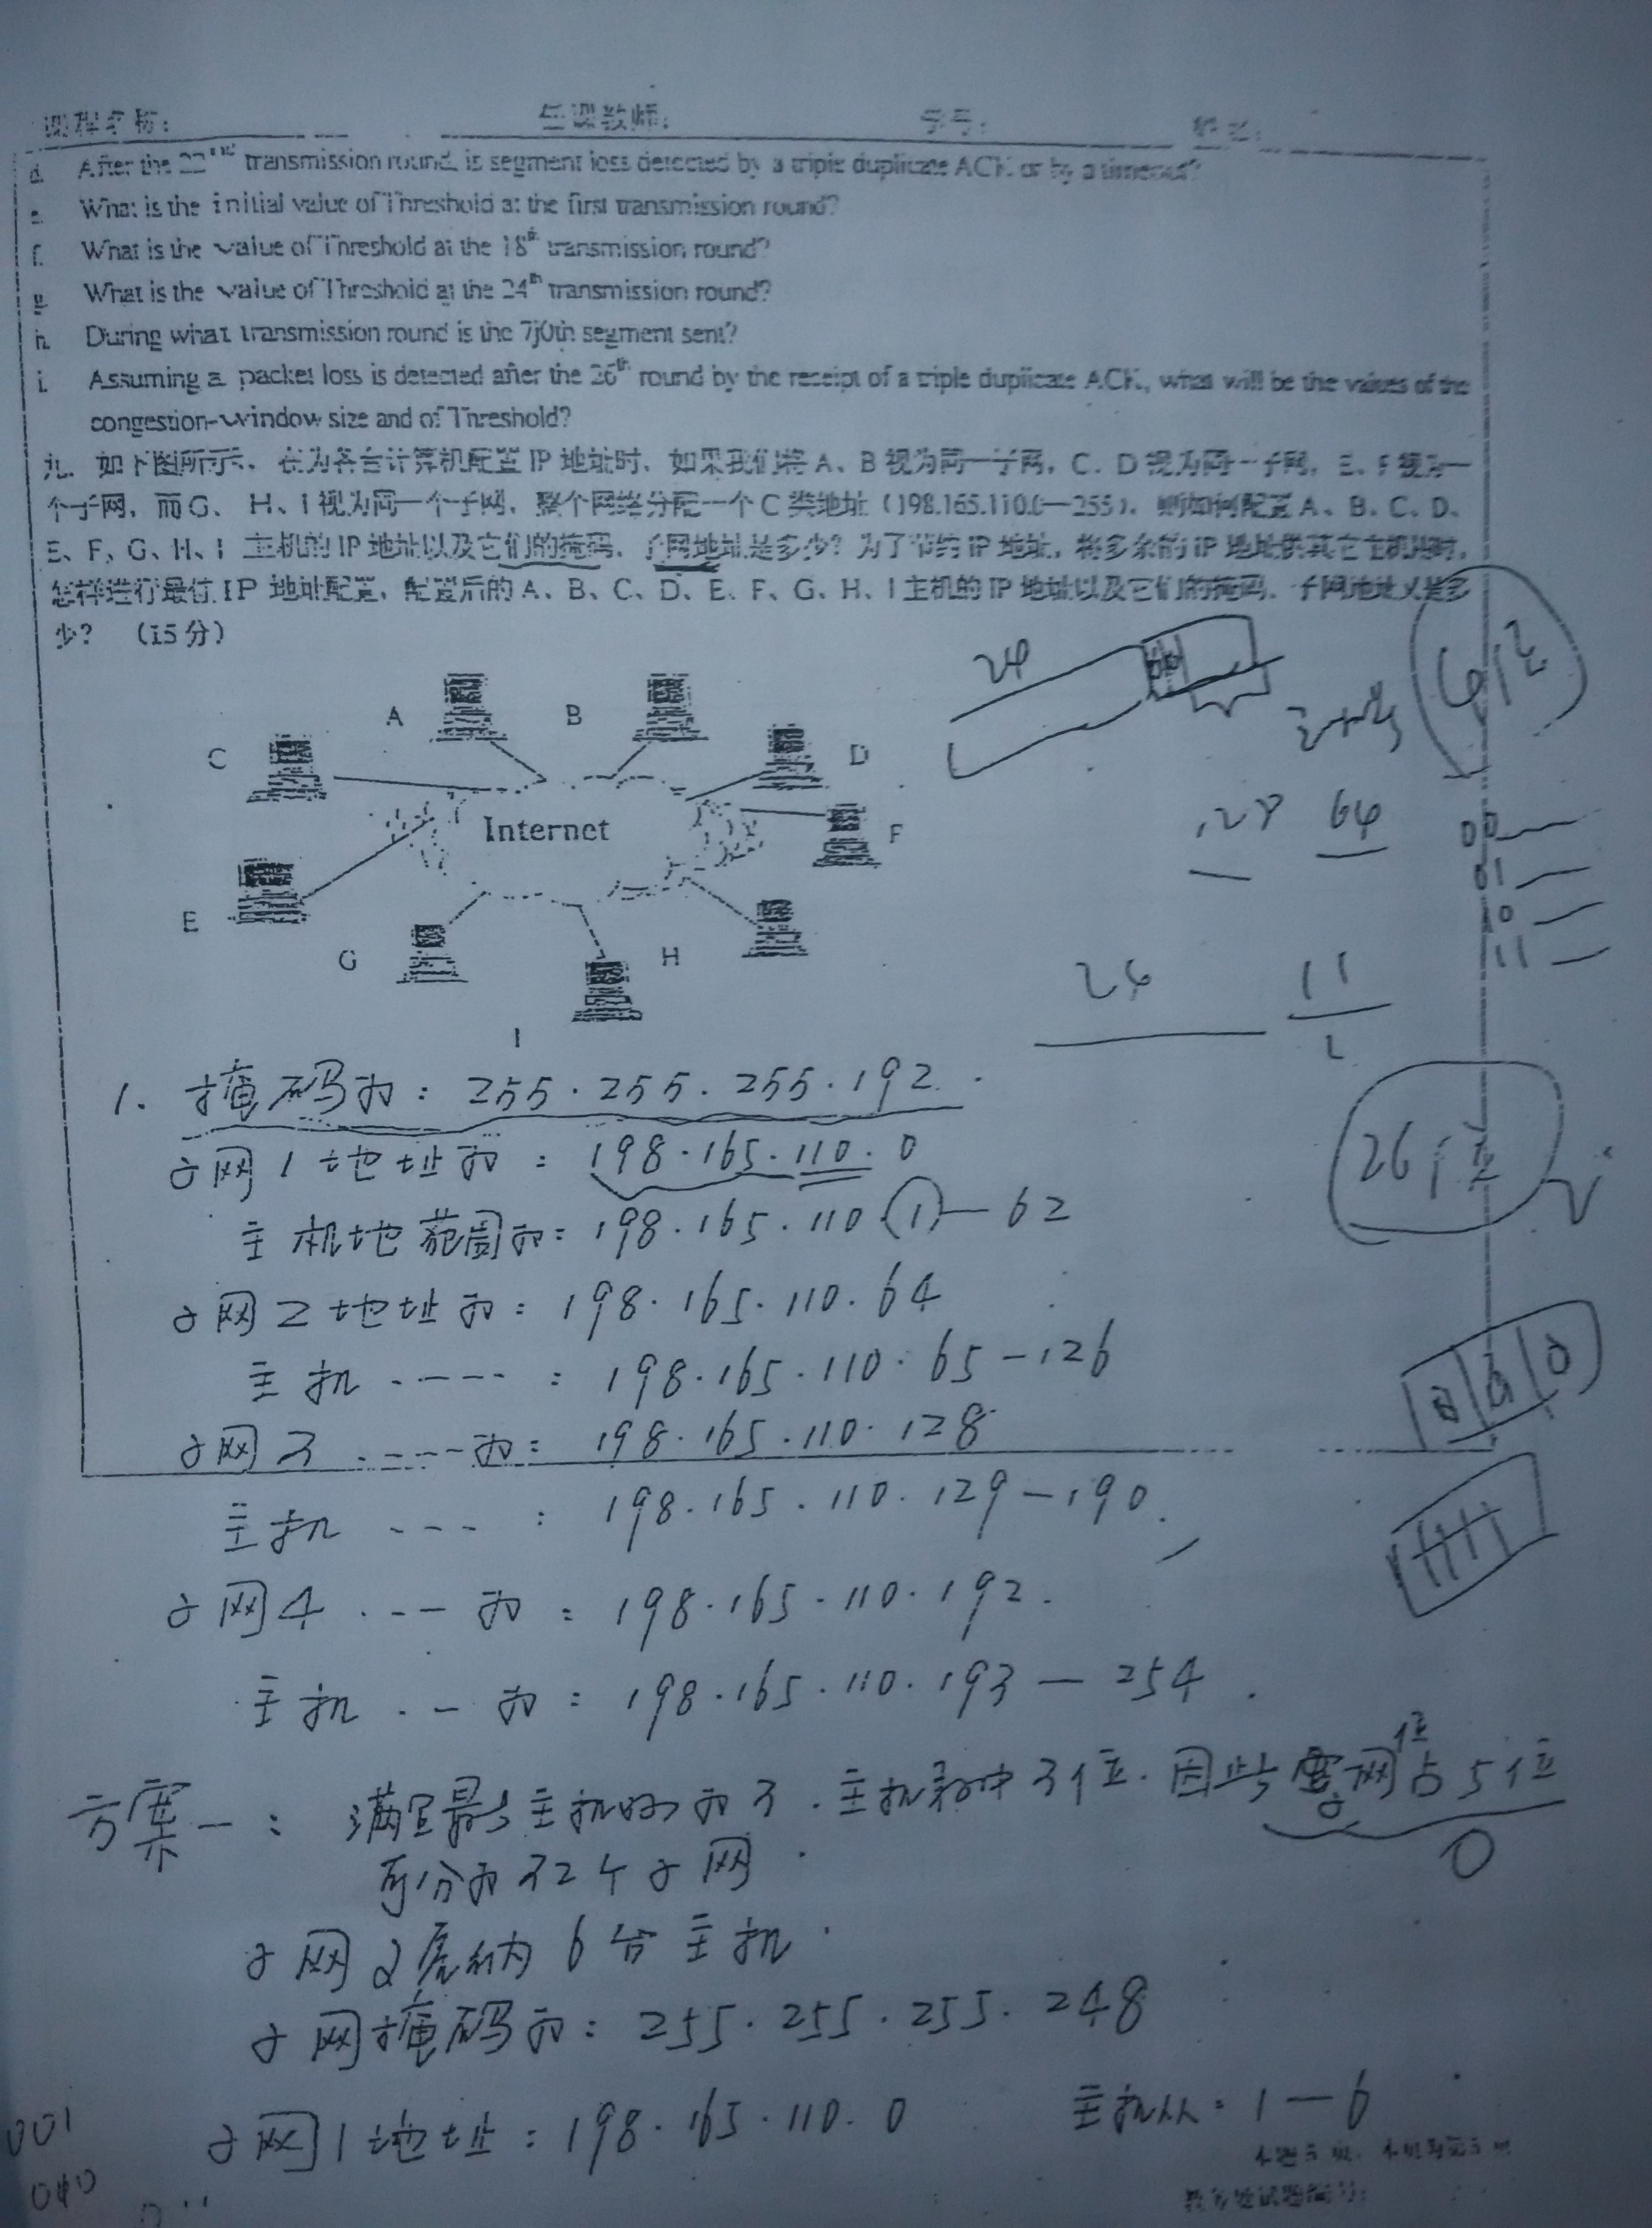 课程名称:
任课教师:
学号:
姓名:
d. After the 22nd transmission round, is segment loss detected by a triple duplicate ACK or by a timeout?
e. What is the initial value of Threshold at the first transmission round?
f. What is the value of Threshold at the 18th transmission round?
g. What is the value of Threshold at the 24th transmission round?
h. During what transmission round is the 70th segment sent?
i. Assuming a packet loss is detected after the 26th round by the receipt of a triple duplicate ACK, what will be the values of the
congestion-window size and of Threshold?
九. 如下图所示, 在为各台计算机配置 IP 地址时, 如果我们将 A、B 视为同一子网, C、D 视为同一子网, E、F 视为一
个子网, 而 G、H、I 视为同一个子网, 整个网络分配一个 C 类地址 (198.165.110.0—255), 则如何配置 A、B、C、D、
E、F、G、H、I 主机的 IP 地址以及它们的掩码, 子网地址是多少? 为了节约 IP 地址, 将多余的 IP 地址供其它主机用时,
怎样进行最佳 IP 地址配置, 配置后的 A、B、C、D、E、F、G、H、I 主机的 IP 地址以及它们的掩码, 子网地址又是多
少? (15 分)
24
6位
A
B
C
D
128 64
00
01
10
11
Internet
F
E
G
H
26
11
I
1. 掩码为: 255.255.255.192.
子网1地址为: 198.165.110.0
26位
主机地范围为: 198.165.110.1—62
子网2地址为: 198.165.110.64
主机 ----: 198.165.110.65-126
子网3 ----为: 198.165.110.128
主机 ---: 198.165.110.129-190.
子网4 ---为: 198.165.110.192.
主机 --为: 198.165.110.193—254.
方案一: 满足最多主机的为3. 主机部分3位. 因此子网位占5位
可分为32个子网.
子网可容纳6台主机.
子网掩码为: 255.255.255.248
子网1地址: 198.165.110.0 主机从: 1—6
001
010
011